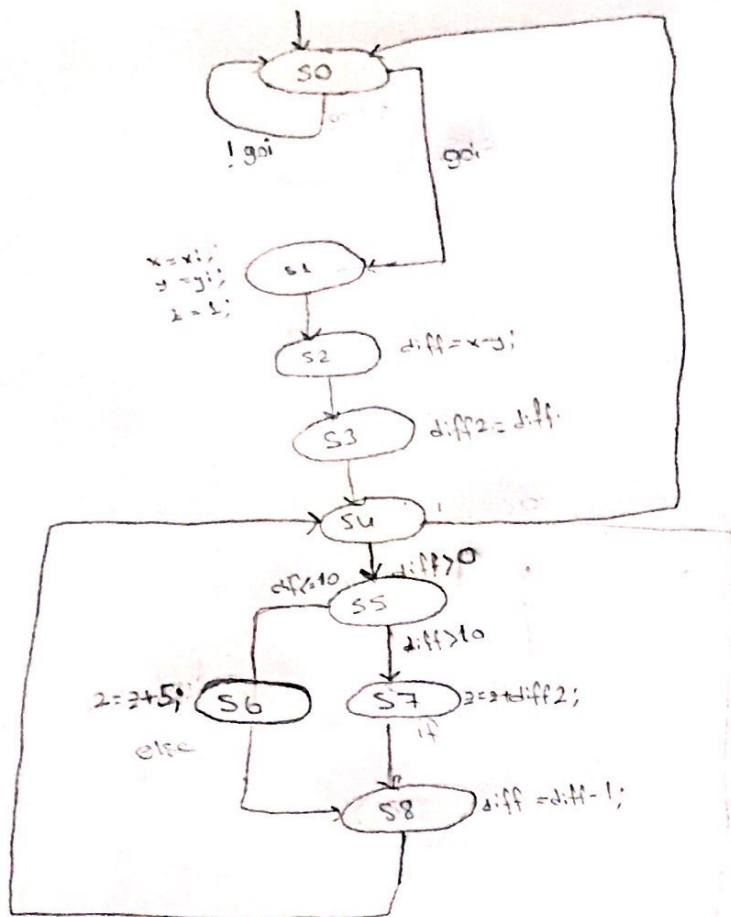 S0
! goi
goi
x = xi;
y = yi;
z = 1;
S1
S2
diff = x-y;
S3
diff2 = diff.
S4
diff>0
S5
diff>10
z = z+5;
S6
S7
z=z+diff2;
else
if
S8
diff = diff-1;